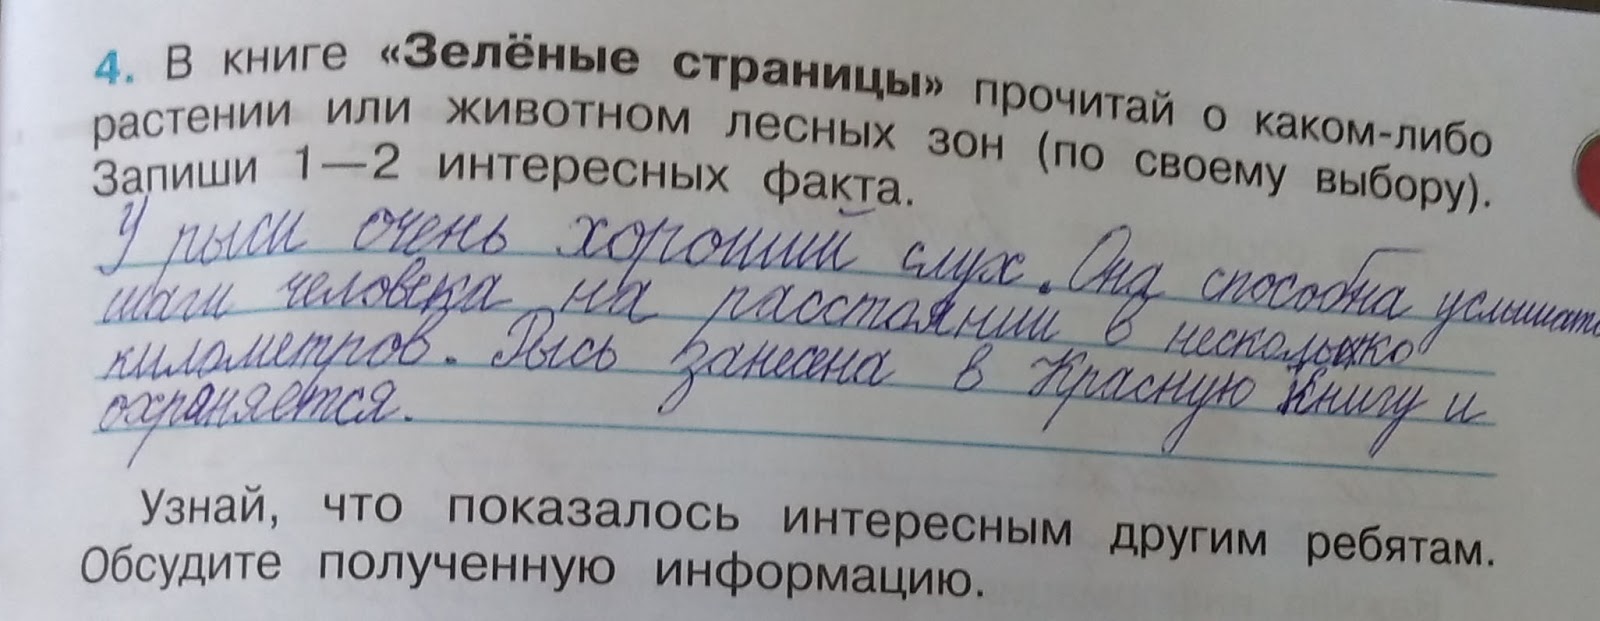 4. В книге «Зелёные страницы» прочитай о каком-либо
растении или животном лесных зон (по своему выбору).
Запиши 1—2 интересных факта.
У рыси очень хороший слух. Она способна услышать
шаги человека на расстоянии в несколько
километров. Рысь занесена в Красную книгу и
охраняется.
Узнай, что показалось интересным другим ребятам.
Обсудите полученную информацию.